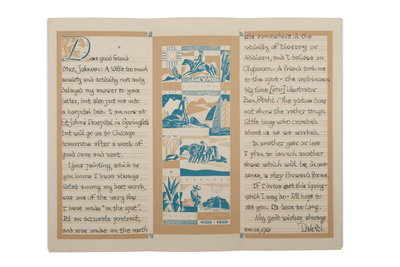 Dear good friend
Mrs. Johnson: A little too much
anxiety and activity not only
delayed my answer to your
letter, but also put me into
a hospital bed. I am now at
St. Johns Hospital in Springfield
but will go on to Chicago
tomorrow after a week of
good care and rest.
Your painting, which as
you know I have always
rated among my best work,
was one of the very few
I have made "on the spot".
It's an accurate portrait,
and was made on the north
side somewhere in the
vicinity of Diversey or
Addison, and I believe on
Clybourn. A friend took me
to the spot - the well known
by time [now] illustrator
The picture does
not show the rather tough
little boys who crowded
about us as we worked.
In another year or two
I plan to launch another
show which will be, in some
sense, a step forward for me.
If I drive east this Spring
which I may do - I'll hope to
see you. It's been too long.
My good wishes always